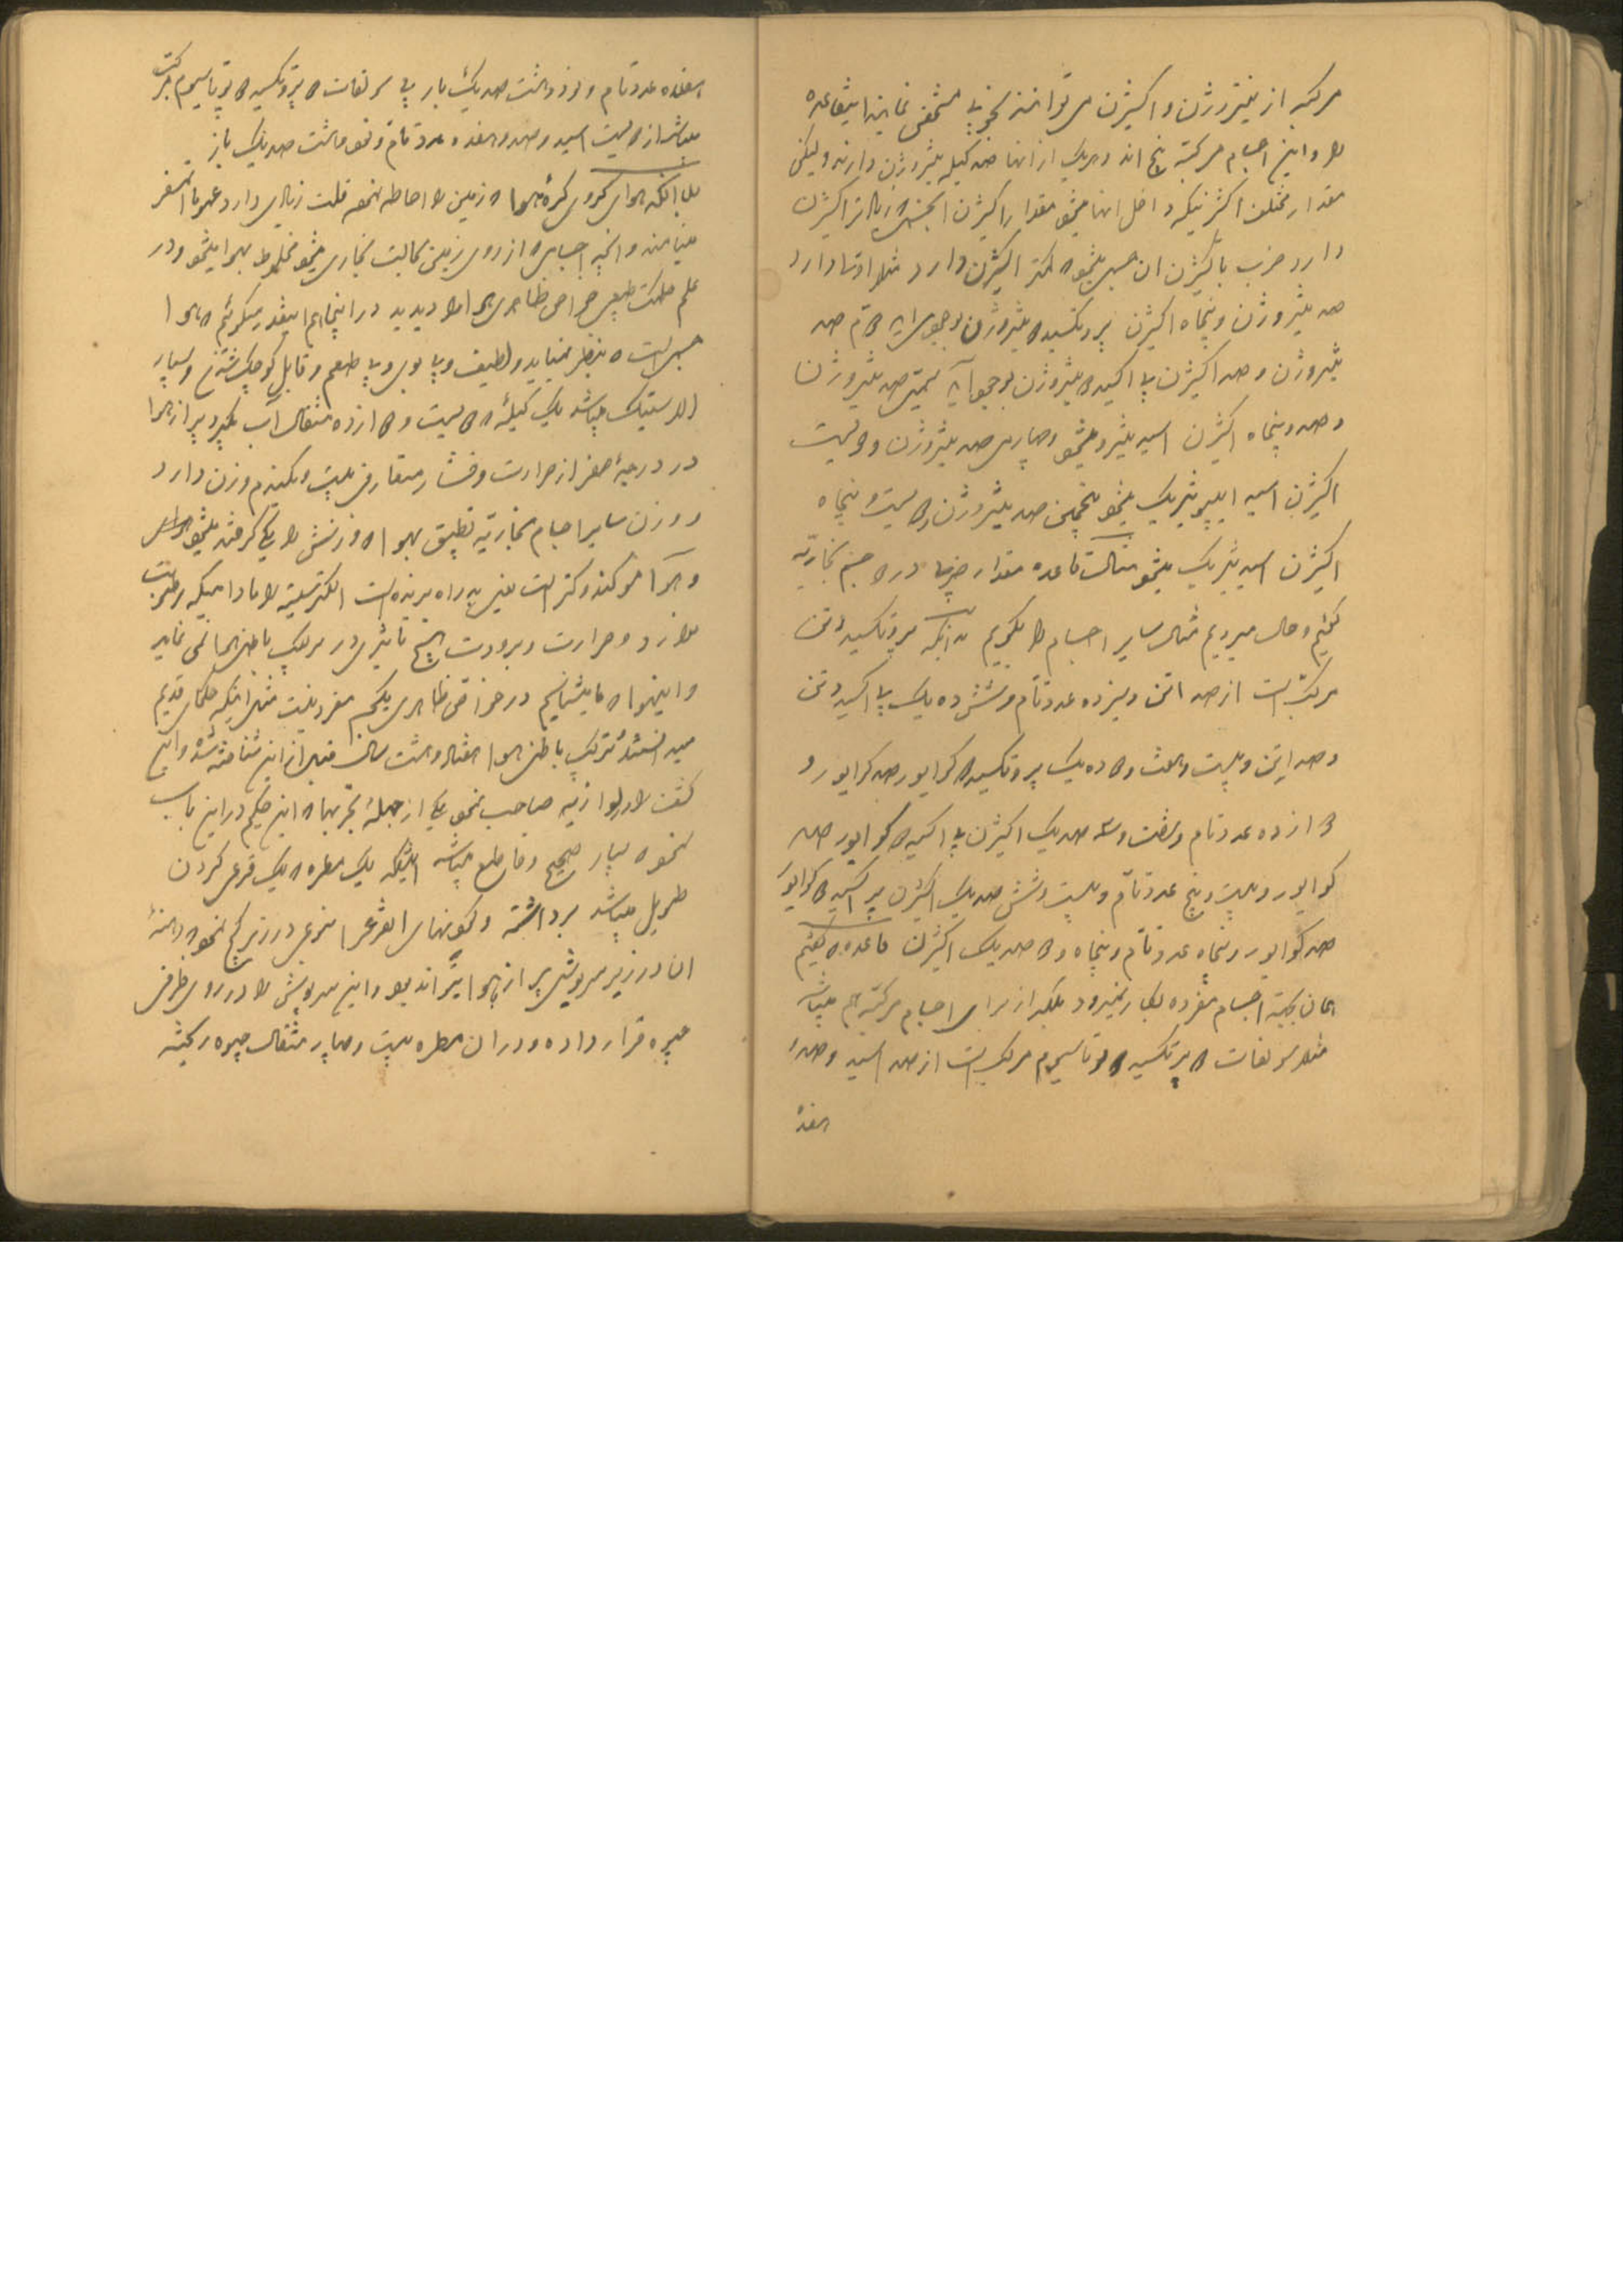 مرکبه از نیتروژن و اکثیژن می توانند بخوبی مشخص نمایند اینقاعده
را و این اجسام مرکبه پنج اند و هریک از انها صد کیله نیتروژن دارند ولیکن
مقدار مختلف اکثیژنیکه داخل انها میشود مقدار اکثیژن انجسمی که زیادتر اکثیژن
دارد ضرب با کثیژن ان جسمی میشود که کمتر اکثیژن دارد مثلا اولا دارد
صد نیتروژن و پنجاه اکثیژن پروتکسید نیتروژن بوجود می اید دوّم صد
نیتروژن و صد اکثیژن بی اکسید نیتروژن بوجود آید سیمی صد نیتروژن
و صد و پنجاه اکثیژن اسید نیترو میشود و چهارمی صد نیتروژن و دویست
اکثیژن اسید ایپونیتریک میشود پنجمین صد نیتروژن و دویست و پنجاه
اکثیژن اسید نیتریک میشود مثالست قاعده مقدار ضربی در جسم بخاریّه
گفتیم و حال میرویم مثال سایر اجسام را بگوییم بدانکه پروتکسید اتن
مرکّب است از صد اتن و سیزده عدد تام و شش ده یک بی اکسید اتن
و صد اتن و بیست و هفت و ده یک پروتکسید کوایور صد کوایور و
دوازده عدد تام و شصت و سه صد یک اکثیژن بی اکسید کوایور صد
کوایور و بیست و پنج عدد تامّ و بیست و شش صد یک اکثیژن پر اکسید کوایور
صد کوایور و پنجاه عدد تامّ و پنجاه و دو صد یک اکثیژن قاعده که گفتیم
همان بجهة اجسام مفرده بکار نمیرود بلکه از برای اجسام مرکبه هم میباشد
مثلا سولفات پروتکسید پوتاسیوم مرکب است از صد اسید و صد و
هفده
هفده عدد تام و نود و هشت صد یک باز بی سولفات پروتکسید پوتاسیوم مرکب
میباشد از دویست اسید و صد و هفده عدد تام و نود و هشت صد یک باز
بدانکه هوای کروی کرۀ هوا که زمین را احاطه نموده قلت زیادی دارد عموما اتمسفر
مینامند و آنچه اجسامی که از روی زمین بحالت بخاری میشود مخلوط بهوا میشود و در
علم حکمت طبیعی خواص ظاهری هوا را دیدید در اینجا هم اینقدر میگوئیم که هوا
جسمی است که بنظر نمیاید و لطیف و بی بوی و بی طعم و قابل کوچک شدن و بسیار
الاستیک میباشد یک کیلۀ که دویست و دوازده مثقال آب بگیرد پر از هوا
در درجۀ صفر از حرارت و فشار متعارفی بیست و یکندم وزن دارد
و وزن سایر اجسام بخاریّه تطبیق بهوا که وزنش را یکی گرفته میشود
و هوا کند و کتر است یعنی بد راه برنده است الکتریسیته را مادامیکه رطوبت
ندارد و حرارت و برودت هیچ تاثیری در ترکیب باطنی هوا نمی نماید
و این هوا که ما میشناسیم در خواص ظاهری یک جسم مفرد نیست مثل اینکه حکمای قدیم
میدانستند ترکیب باطنی هوا هفتاد و هشت سال قبل از این شناخته شد و این
کشف را لاوازیه صاحب نمود یکی از جملۀ تجربهای این حکیم در این باب
نحوه بسیار صحیح و قاطع میباشد اینکه یک مطره که یک قرعی گردن
طویل میباشد برداشته و گونهای القرع را بنوعی در زیر کج نموده دهنۀ
ان در زیر سرپوشی پر از هوا میماند و این سرپوش را در روی ظرفی
جیوه قرار داده و در ان مطره بیست و چهار مثقال جیوه ریخته